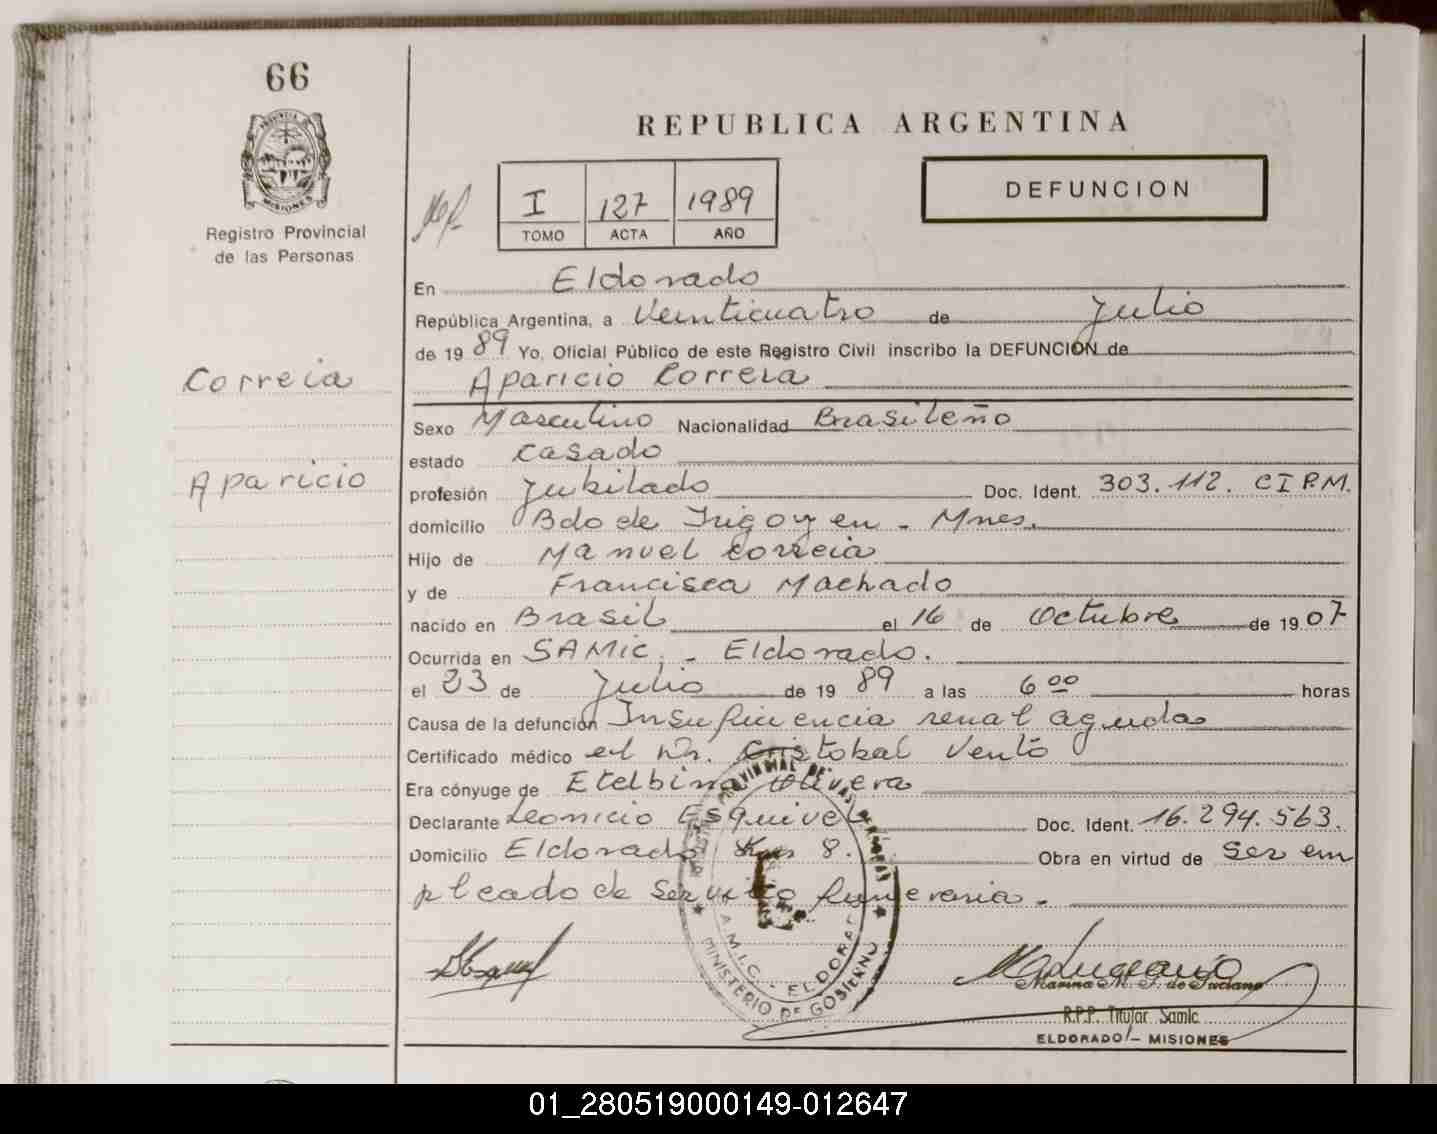 66
REPUBLICA ARGENTINA
PROVINCIA DE
MISIONES
Registro Provincial
de las Personas
I 127 1989
TOMO ACTA AÑO
DEFUNCION
En Eldorado
República Argentina, a Veinticuatro de Julio
de 1989 Yo, Oficial Público de este Registro Civil inscribo la DEFUNCION de
Correia
Aparicio Correia
Sexo Masculino Nacionalidad Brasileño
estado Casado
Aparicio
profesión Jubilado Doc. Ident. 303.112. C I P.M.
domicilio Bdo de Irigoyen - Mnes.
Hijo de Manuel Correia
y de Francisca Machado
nacido en Brasil el 16 de Octubre de 1907
Ocurrida en SAMIC, - Eldorado.
el 23 de Julio de 1989 a las 6 00 horas
Causa de la defunción Insuficiencia renal aguda
Certificado médico el Dr. Cristobal Vento
Era cónyuge de Etelbina Olivera
Declarante Leonicio Esquivel Doc. Ident. 16.294.563.
Domicilio Eldorado Km 8. Obra en virtud de Ser em
pleado de Servicio funeraria.
PROVINCIAL DE LAS PERSONAS
S.A.M.I.C. - ELDORADO
MINISTERIO DE GOBIERNO
Marina M. F. de Luciano
R.P.P. Titular Samic
ELDORADO - MISIONES
01_280519000149-012647